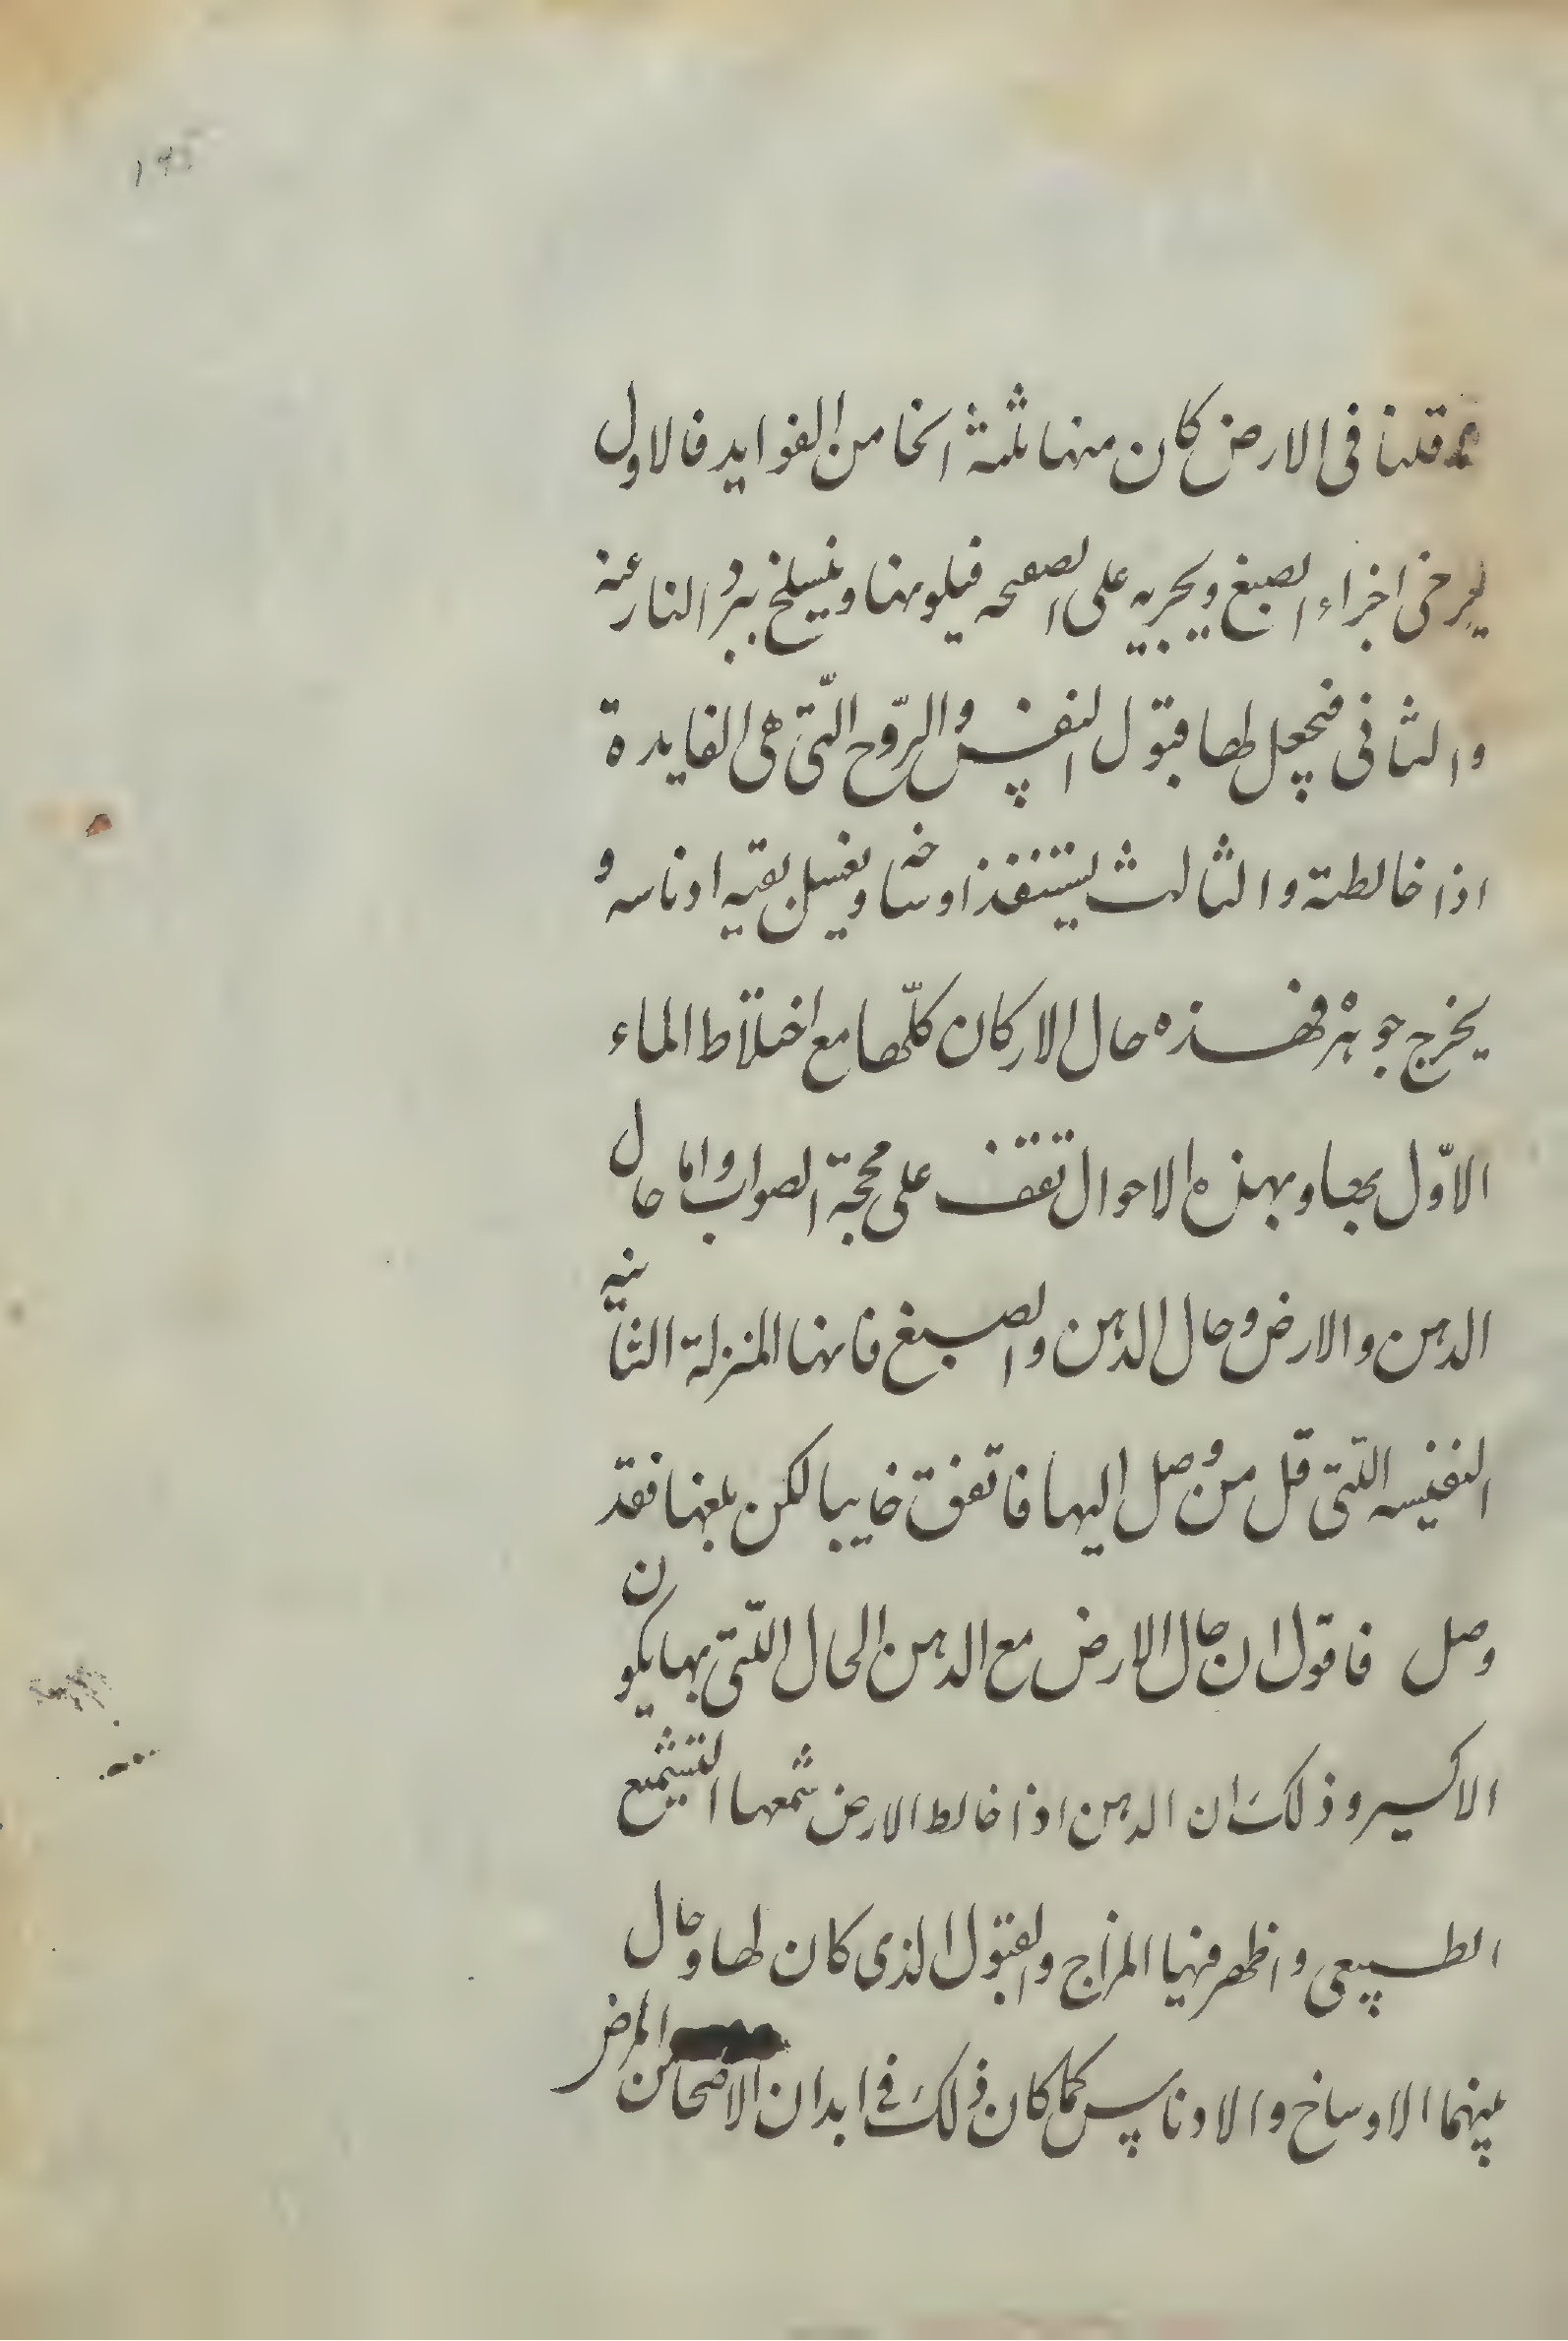 قلنا فى الارض كان منها ثلثة انحا من الفوايد فالاول
يرخى اجزاء الصبغ ويجريه على الصفحه فيلونها وينسلخ ببرد النار عنه
والثانى فيجعل لها قبول النفس والرّوح الّتى هى الفايدة
اذا خالطته والثالث يستنفذ اوساخه ويغسل بقيه ادناسه و
يخرج جوهره فهذه حال الاركان كلّها مع اختلاط الماء
الاوّل بها وبهذه الاحوال تقف على محجة الصواب واما حال
الدهن والارض وحال الدهن والصبغ فانها المنزلة الثانيه
النفيسه الّتى قل من وصل اليها فاتفق خايبا لكن بلغها فقد
وصل فاقول ان حال الارض مع الدهن الحال الّتى بها يكون
الاكسير وذلك ان الدهن اذا خالط الارض شمعها التشميع
الطبيعى واظهر فيها المزاج والقبول الذى كان لها وحال
بينهما الاوساخ والادناس كما كان ذلك فى ابدان الاصحا من المرض